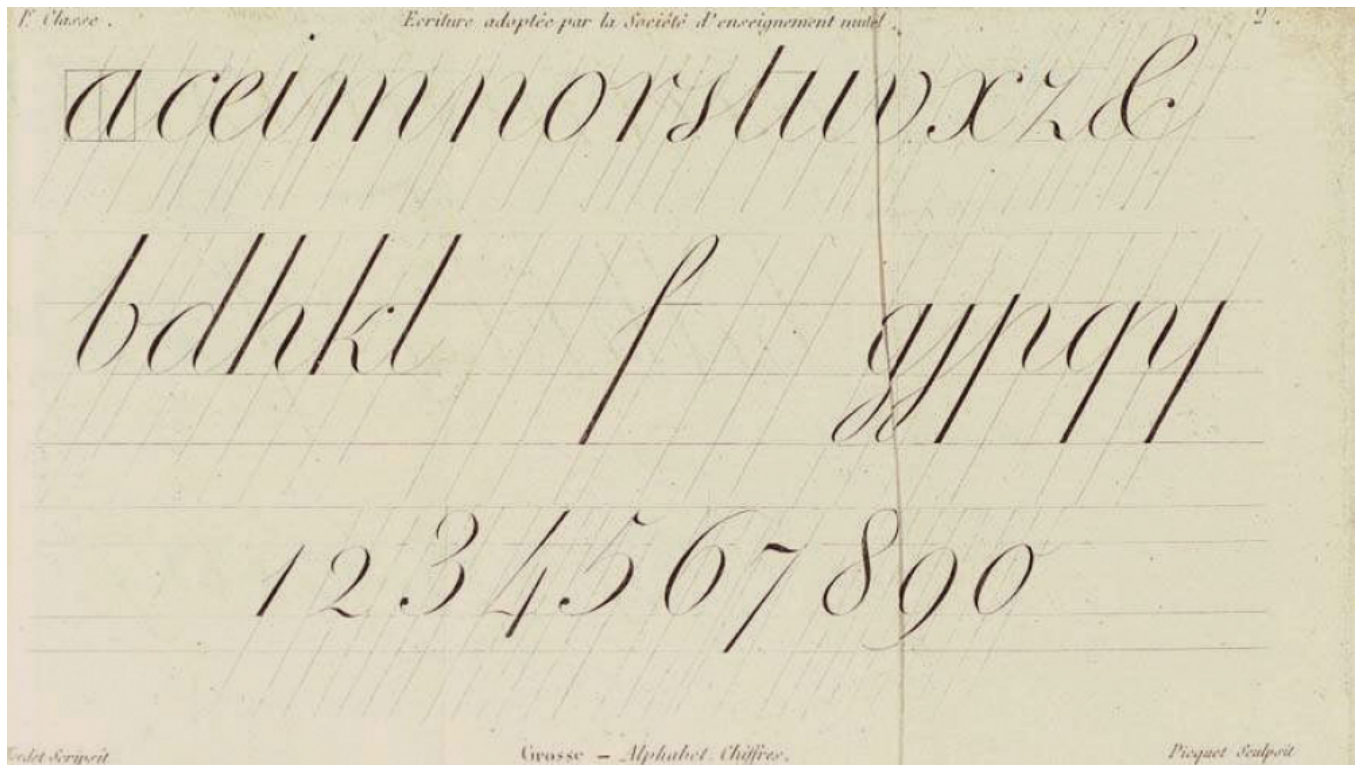 Classe. Ecriture adoptée par la Société d'enseignement mutel. 2.
a c e i m n o r s t u v x z &
b d h k l f g j p q y
1 2 3 4 5 6 7 8 9 0
Scripsit Grosse — Alphabet. Chiffres. Picquet Sculpsit